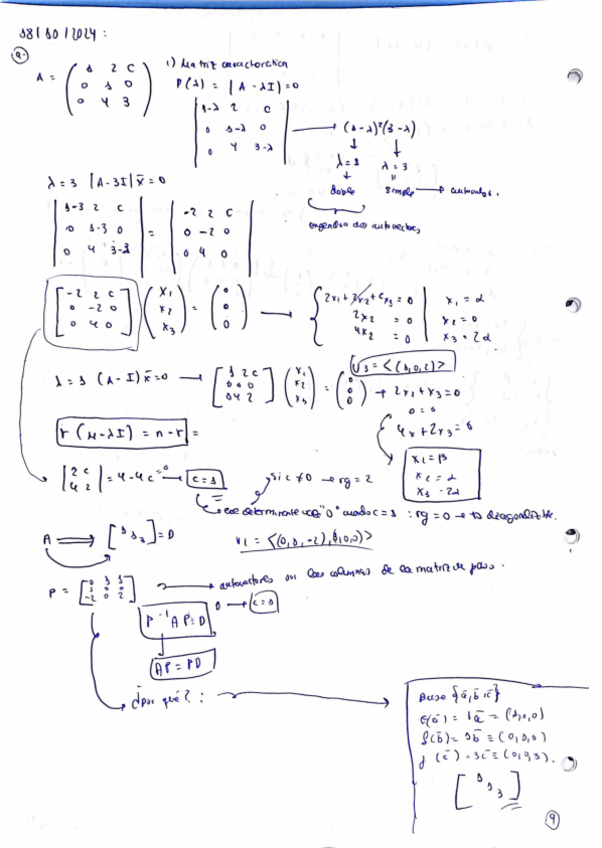 18/10/2024:
9.
A = ( 1 2 C
0 1 0
0 4 3 )
1) Matriz característica
P(λ) = |A - λI| = 0
| 1-λ 2 C
0 1-λ 0
0 4 3-λ | → (1-λ)²(3-λ)
λ=1 λ=3
doble simple → autovalor.
engendra dos autovectores
λ=3 |A-3I| x̄ = 0
| 1-3 2 C
0 1-3 0
0 4 3-3 | = | -2 2 C
0 -2 0
0 4 0 |
[ -2 2 C
0 -2 0
0 4 0 ] ( x1
x2
x3 ) = ( 0
0
0 ) → { 2x1+2x2+Cx3 = 0
2x2 = 0
4x2 = 0
x1 = α
x2 = 0
x3 = 2α
U3 = <(1,0,2)>
λ=1 (A-I) x̄=0 → [ 1 2 C
0 0 0
0 4 2 ] ( x1
x2
x3 ) = ( 0
0
0 ) → 2x2+x3=0
0=0
4x+2x3=0
x1=β
x2=α
x3 -2α
r (M-λI) = n-r =
| 2 C
4 2 | = 4-4C =0 → C=1
si c ≠ 0 → rg = 2
ese determinante vale "0" cuando C=1 : rg=0 → es diagonalizable.
A ⟹ [ 1 1 3 ] = D
V1 = <(0,1,-2),(1,0,0)>
P = [ 0 1 1
1 0 0
-2 0 2 ] → autovectores son las columnas de la matriz de paso.
0 → C=1
P⁻¹AP=D
AP=PD
¿Por qué? :
Base {ā,b̄,c̄}
f(ā) = 1ā = (1,0,0)
f(b̄) = 1b̄ = (0,1,0)
f(c̄) = 3c̄ = (0,0,3).
[ 1 1 3 ]
9